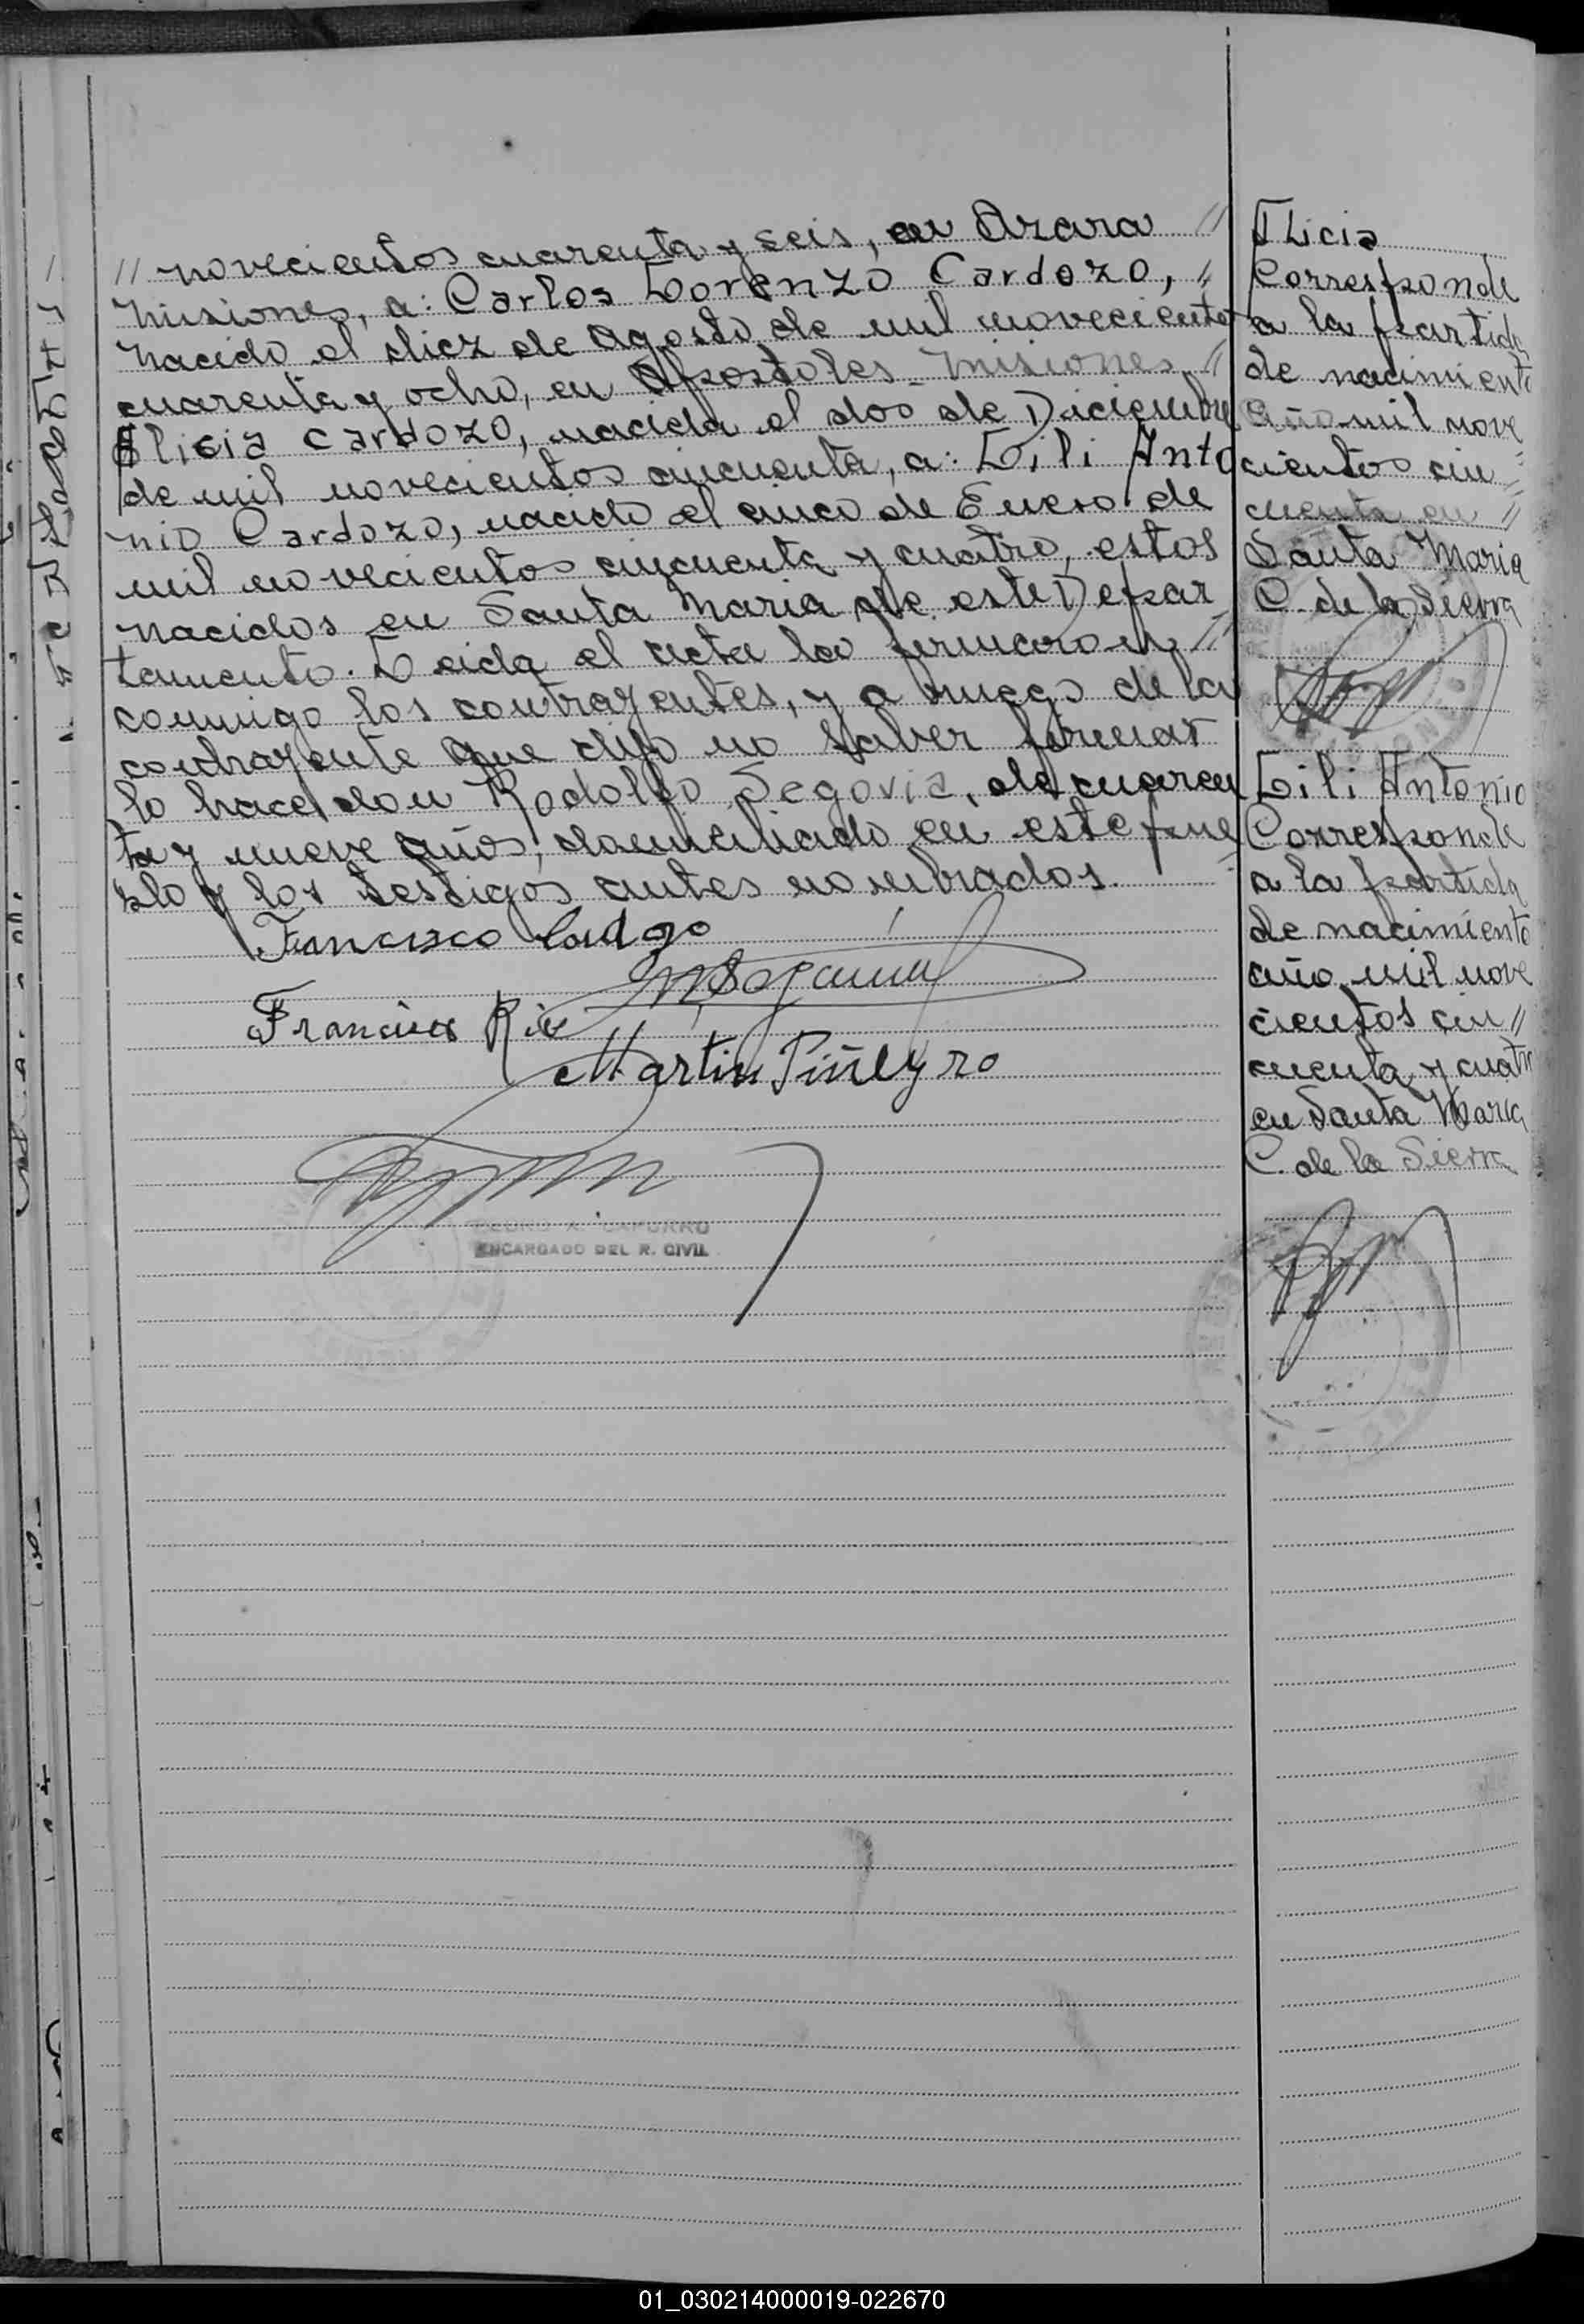 // novecientos cuarenta y seis, en Azara //
Misiones, a: Carlos Lorenzo Cardozo, //
nacido el diez de Agosto de mil novecientos
cuarenta y ocho, en Apostoles - Misiones //
Alicia Cardozo, nacida el dos de Diciembre
de mil novecientos cincuenta, a: Lili Anto
nio Cardozo, nacido el cinco de Enero de
mil novecientos cincuenta y cuatro, estos
nacidos en Santa Maria de este Depar
tamento. Leida el acta la firmaron //
conmigo los contrayentes, y a ruego de la
contrayente que dijo no saber firmar
lo hace don Rodolfo Segovia, de cuaren
ta y nueve años, domiciliado en este pue
blo y los testigos antes nombrados.
Francisco
Francisco
Martin Piñeyro
PEDRO A. CAFURRO
ENCARGADO DEL R. CIVIL
Alicia
Corresponde
a la partida
de nacimiento
año mil nove
cientos cin //
cuenta en //
Santa Maria
C. de la Sierra
Lili Antonio
Corresponde
a la partida
de nacimiento
año mil nove
cientos cin //
cuenta y cuatro
en Santa Maria
C. de la Sierra
01_030214000019-022670